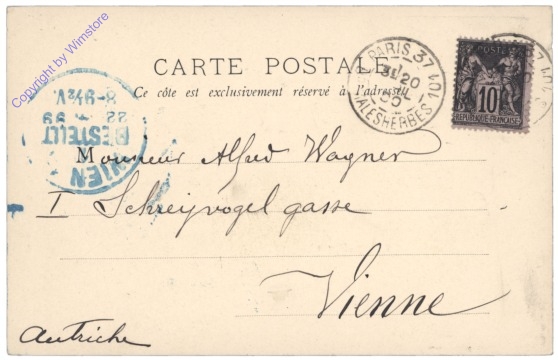 Copyright by Wimstore
CARTE POSTALE
Ce côté est exclusivement réservé à l'adresse
PARIS 37
BD MALESHERBES 101
POSTE
10
REPUBLIQUE FRANÇAISE
WIEN
BESTELLT
8-9½V
22 99
Monsieur Alfred Wagner
I Schreyvogelgasse
Vienne
Autriche